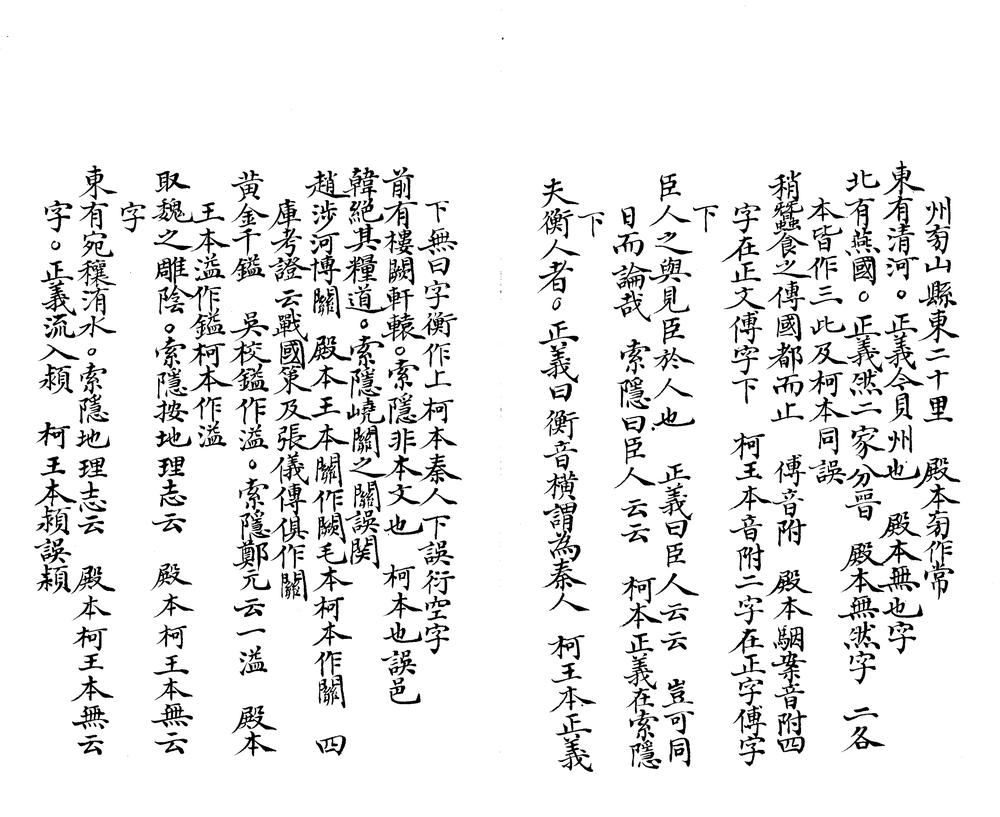 州旁山縣東二十里　殿本旁作常
東有清河。正義今貝州也　殿本無也字
北有燕國。正義然二家分晉　殿本無然字　二各
本皆作三此及柯本同誤
稍蠶食之傅國都而止　傅音附　殿本駰案音附四
字在正文傅字下　柯王本音附二字在正字傅字
下
臣人之與見臣於人也　正義曰臣人云云　豈可同
日而論哉　索隱曰臣人云云　柯本正義在索隱
下
夫衡人者。正義曰衡音橫謂為秦人　柯王本正義
下無曰字衡作上柯本秦人下誤衍空字
前有樓闕軒轅。索隱非本文也　柯本也誤邑
韓絕其糧道。索隱嶢關之關誤関
趙涉河博關　殿本王本關作闕毛本柯本作關　四
庫考證云戰國策及張儀傳俱作關
黃金千鎰　吳校鎰作溢。索隱鄭元云一溢　殿本
王本溢作鎰柯本作溢
取魏之雕陰。索隱按地理志云　殿本柯王本無云
字
東有宛穰洧水。索隱地理志云　殿本柯王本無云
字。正義流入潁　柯王本潁誤穎